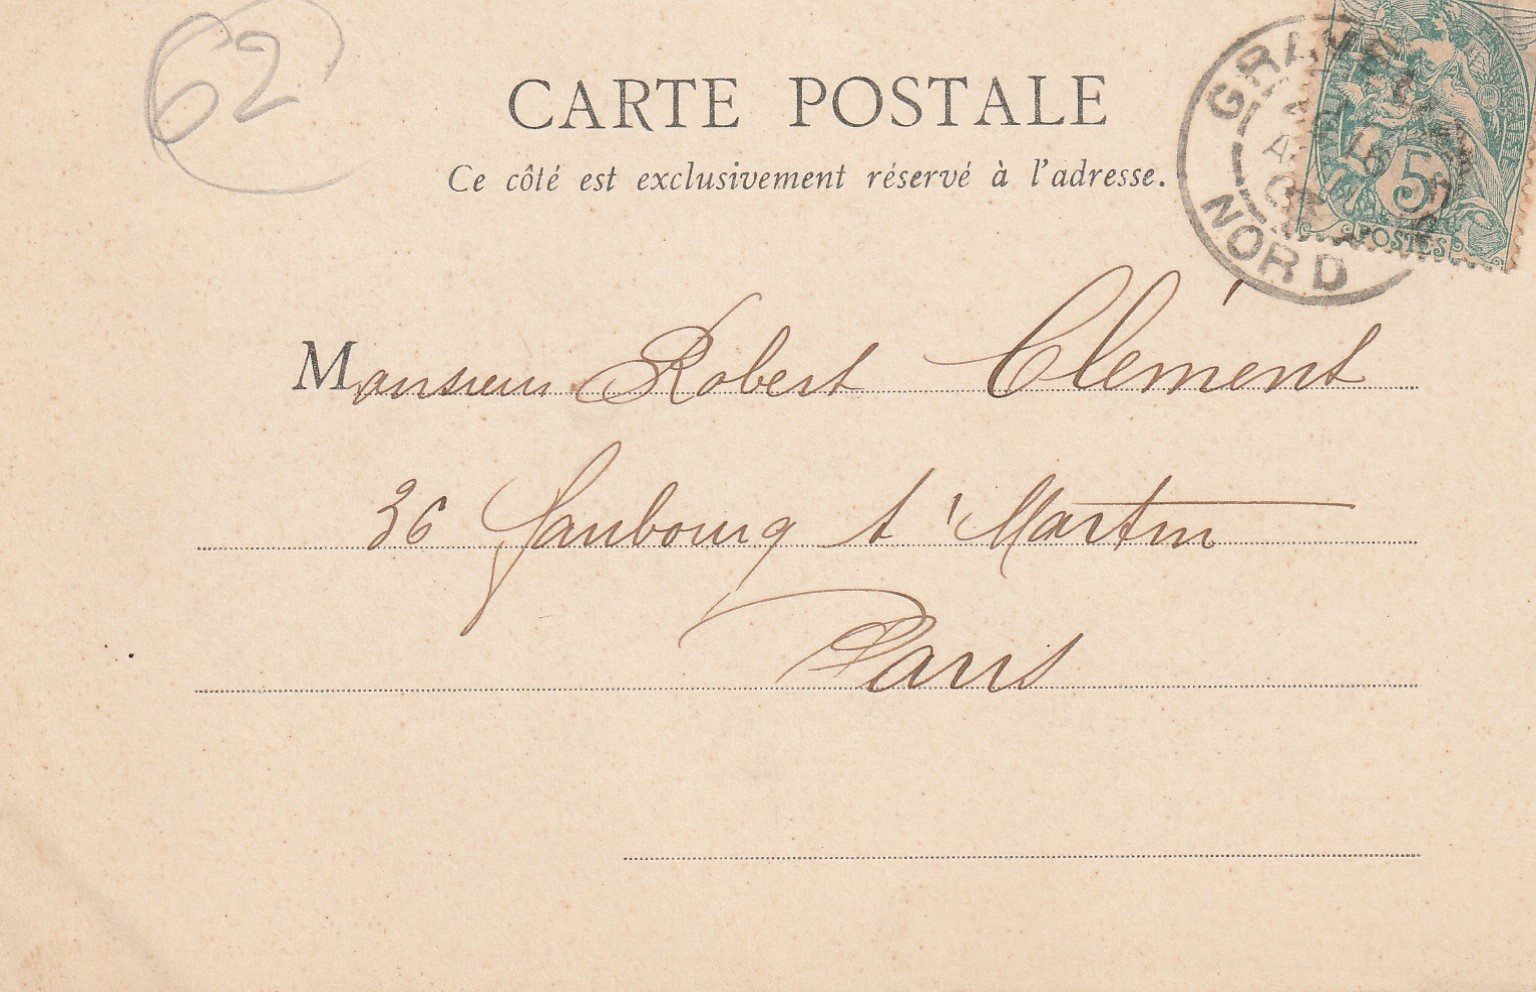 62
CARTE POSTALE
Ce côté est exclusivement réservé à l'adresse.
GRAND
NORD
5
POSTES
Monsieur Robert Clément
36 faubourg St Martin
Paris